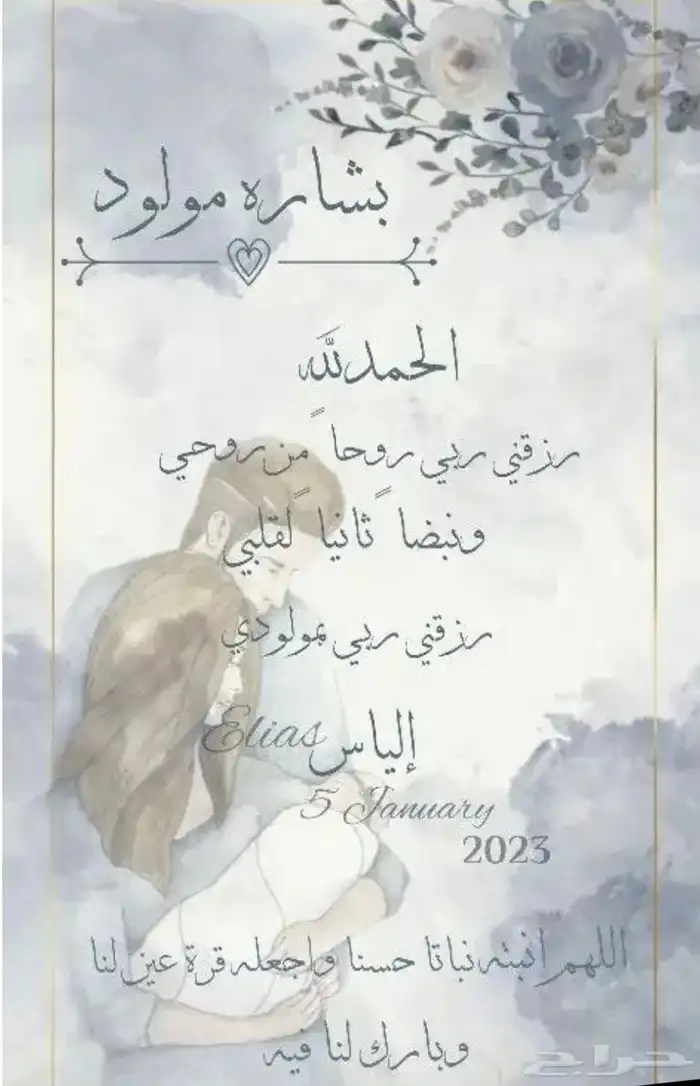 بشاره مولود
الحمدلله
رزقني ربي روحاً من روحي
ونبضاً ثانياً لقلبي
رزقني ربي بمولودي
إلياس Elias
5 January
2023
اللهم انبته نباتا حسنا واجعله قرة عين لنا
وبارك لنا فيه
حراج